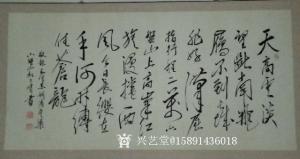 天高雲淡
望断南飛
雁不到長城
非好漢屈
指行程二万六
盤山上高峰紅
旗漫捲西
風今日長纓在
手何時縛
住蒼龍
兴艺堂@15891436018